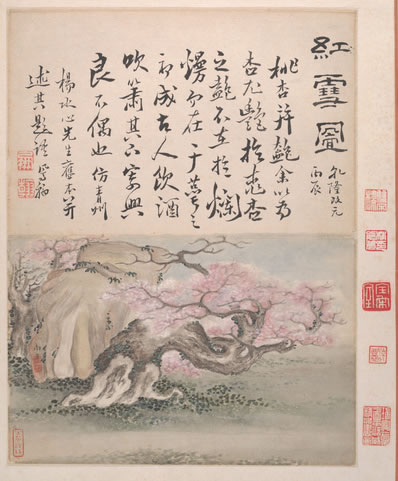 紅雪圖
乾隆改元
丙辰
桃杏并艷余以為
杏尤艷於桃杏
之艷不在於爛
熳而在于之
初成古人飲酒
吹簫其下寄興
良不偶也仿青州
楊水心先生舊本并
述其題